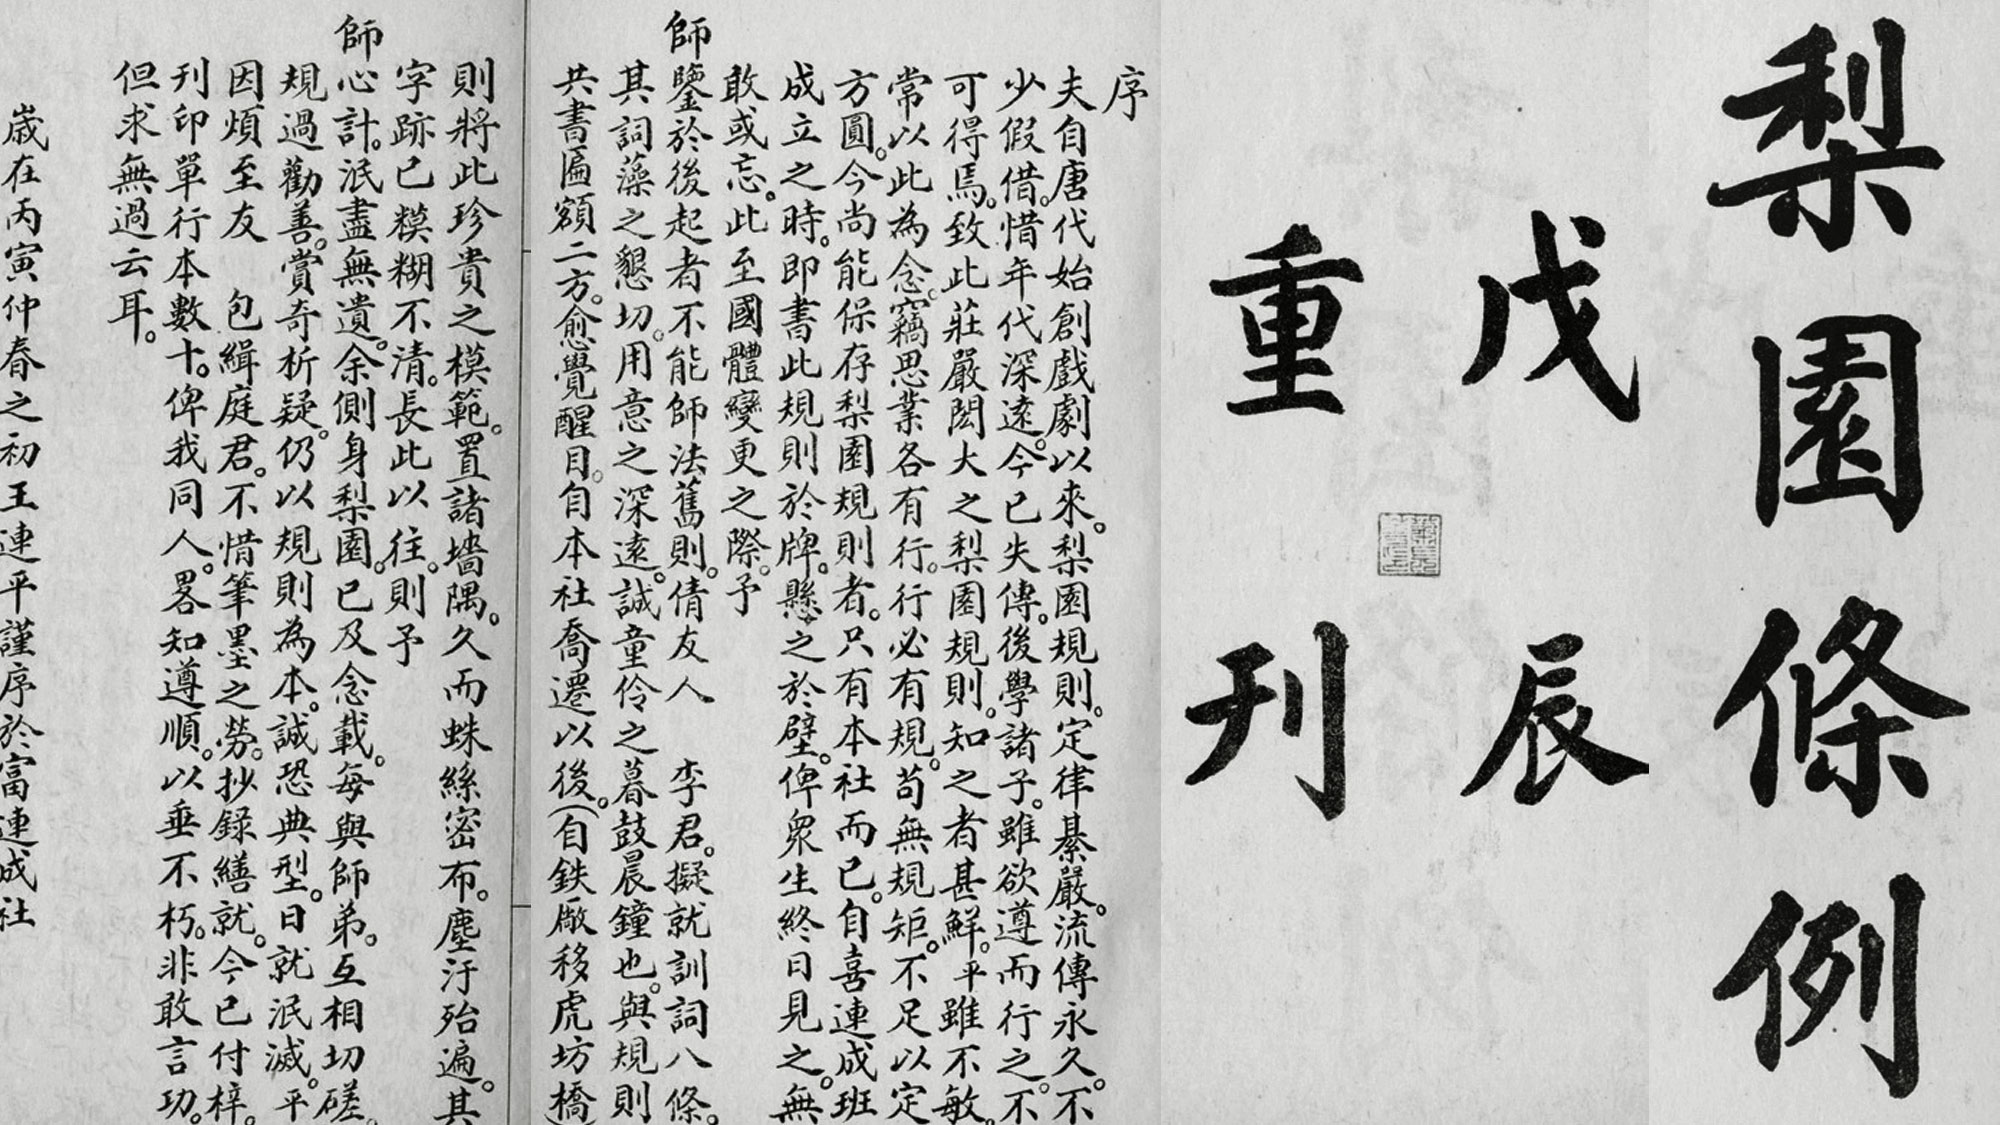 梨園條例
戊辰
重刊
序
夫自唐代始創戲劇以來。梨園規則。定律綦嚴。流傳永久。不
少假借。惜年代深遠。今已失傳。後學諸子。雖欲遵而行之。不
可得焉。致此莊嚴閎大之梨園規則。知之者甚鮮。平雖不敏。
常以此為念。竊思業各有行。行必有規。苟無規矩。不足以定
方圓。今尚能保存梨園規則者。只有本社而已。自喜連成班
成立之時。即書此規則於牌。懸之於壁。俾衆生終日見之。無
敢或忘。此至國體變更之際。予
師鑒於後起者不能師法舊則。倩友人 李君。擬就訓詞八條。
其詞藻之懇切。用意之深遠。誠童伶之暮鼓晨鐘也。與規則
共書匾額二方。愈覺醒目。自本社喬遷以後。(自鉄廠移虎坊橋)
則將此珍貴之模範。置諸墻隅。久而蛛絲密布。塵汙殆遍。其
字跡已模糊不清。長此以往。則予
師心計。泯盡無遺。余側身梨園。已及念載。每與師弟。互相切磋。
規過勸善。賞奇析疑。仍以規則為本。誠恐典型。日就泯滅。平
因煩至友 包緝庭君。不惜筆墨之勞。抄錄繕就。今已付梓。
刊印單行本數十。俾我同人。畧知遵順。以垂不朽。非敢言功。
但求無過云耳。
歲在丙寅仲春之初王連平謹序於富連成社